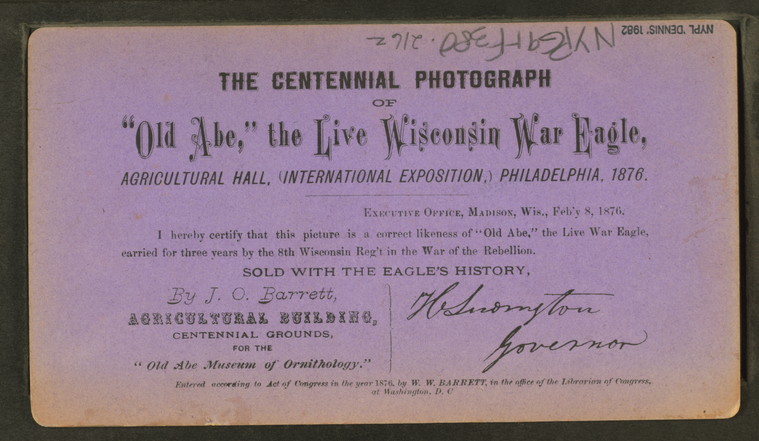 NYPL 'DENNIS' 1982
THE CENTENNIAL PHOTOGRAPH
OF
"Old Abe," the Live Wisconsin War Eagle,
AGRICULTURAL HALL, (INTERNATIONAL EXPOSITION,) PHILADELPHIA, 1876.
EXECUTIVE OFFICE, MADISON, WIS., Feb'y 8, 1876.
I hereby certify that this picture is a correct likeness of "Old Abe," the Live War Eagle,
carried for three years by the 8th Wisconsin Reg't in the War of the Rebellion.
SOLD WITH THE EAGLE'S HISTORY,
By J. O. Barrett,
AGRICULTURAL BUILDING,
CENTENNIAL GROUNDS,
FOR THE
"Old Abe Museum of Ornithology."
H Ludington
Governor
Entered according to Act of Congress in the year 1876, by W. W. BARRETT, in the office of the Librarian of Congress,
at Washington, D. C